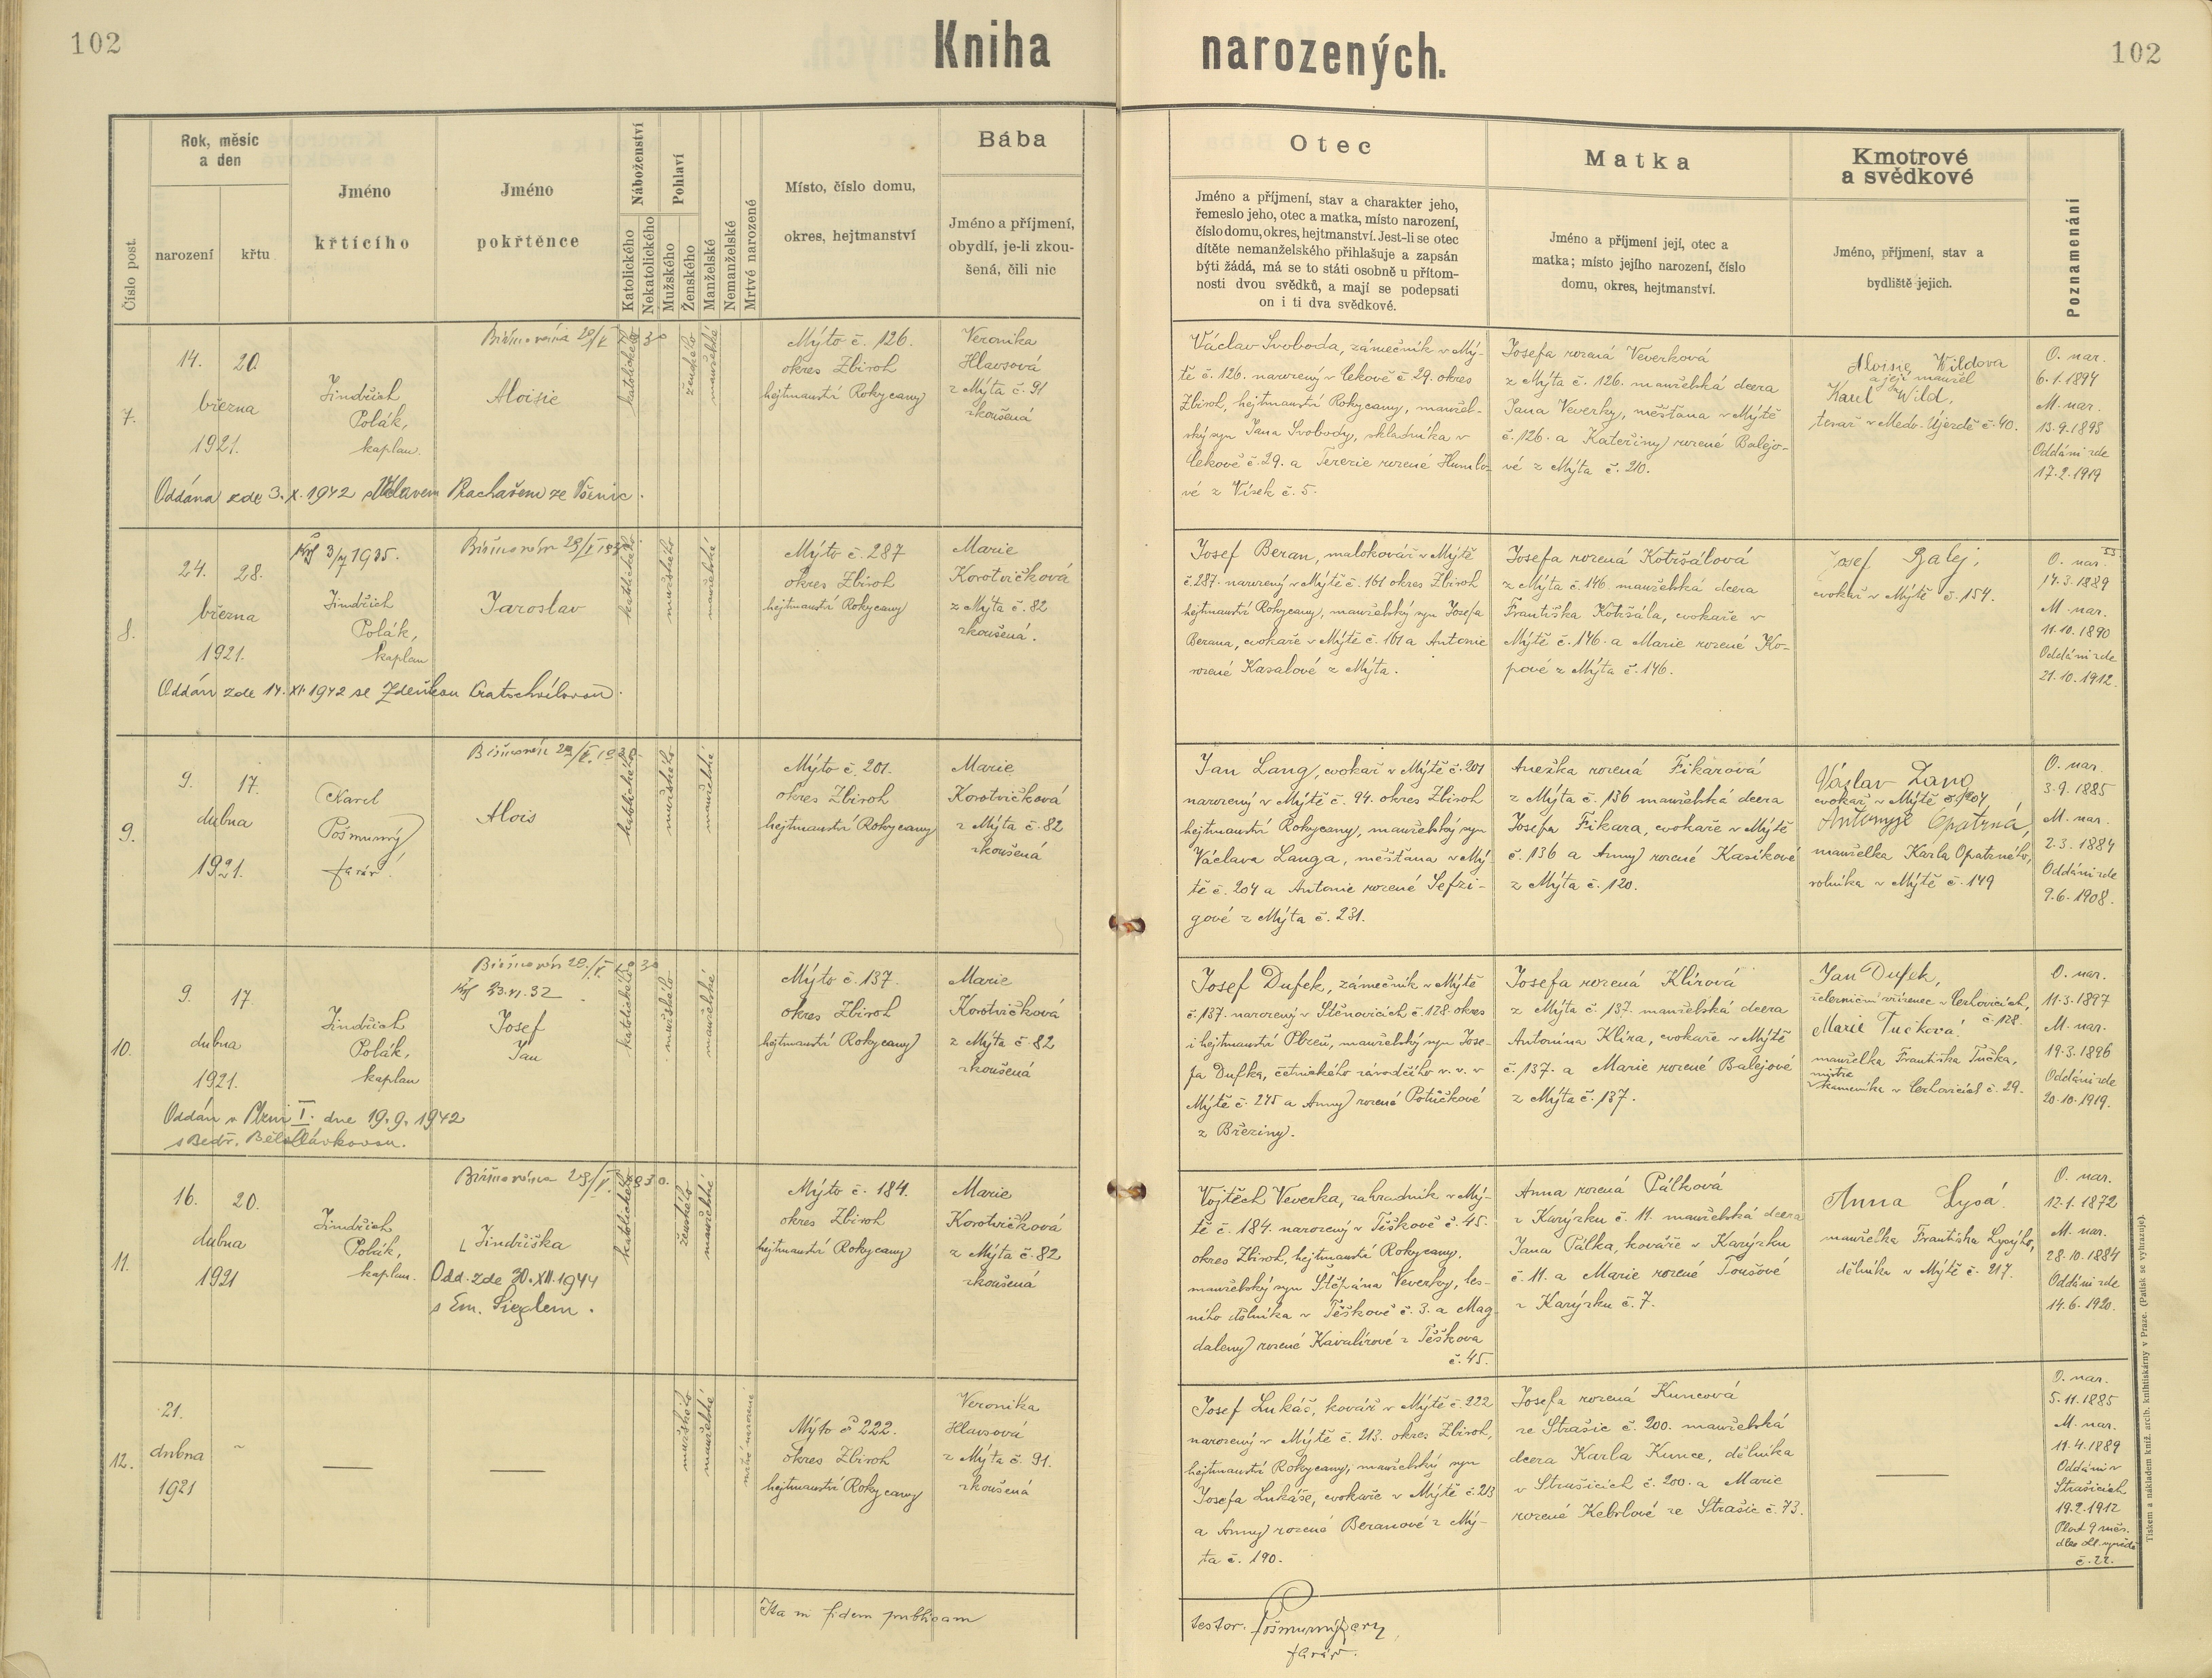 102
Kniha narozených.
102
Číslo post.
Rok, měsíc
a den
narození
křtu
Jméno
křtícího
Jméno
pokřtěnce
Náboženství
Katolického
Nekatolického
Pohlaví
Mužského
Ženského
Manželské
Nemanželské
Mrtvě narozené
Místo, číslo domu,
okres, hejtmanství
Bába
Jméno a příjmení,
obydlí, je-li zkou-
šená, čili nic
Otec
Jméno a příjmení, stav a charakter jeho,
řemeslo jeho, otec a matka, místo narození,
číslo domu, okres, hejtmanství. Jest-li se otec
dítěte nemanželského přihlašuje a zapsán
býti žádá, má se to státi osobně u přítom-
nosti dvou svědků, a mají se podepsati
on i ti dva svědkové.
Matka
Jméno a příjmení její, otec a
matka; místo jejího narození, číslo
domu, okres, hejtmanství.
Kmotrové
a svědkové
Jméno, příjmení, stav a
bydliště jejich.
Poznamenání
7.
14. 20.
března
1921.
Jindřich
Polák,
kaplan.
Biřmována 28/V 30
Aloisie
katolického
ženského
manželské
Mýto č. 126.
okres Zbiroh
hejtmanství Rokycany
Veronika
Hlavsová
z Mýta č. 91
zkoušená
Oddána zde 3. X. 1942 s Václavem Rachašem ze Všenic.
Václav Svoboda, zámečník v Mý-
tě č. 126. narozený v Cekově č. 29. okres
Zbiroh, hejtmanství Rokycany, manžel-
ský syn Jana Svobody, skladníka v
Cekově č. 29. a Terezie rozené Humlo-
vé z Vísek č. 5.
Josefa rozená Veverková
z Mýta č. 126. manželská dcera
Jana Veverky, měšťana v Mýtě
č. 126. a Kateřiny rozené Balejo-
vé z Mýta č. 210.
Aloisie Wildova
a její manžel
Karel Wild,
tesař v Medo. Újezdě č. 40.
O. nar.
6.1.1894
M. nar.
13.9.1898
Oddáni zde
17.2.1919
8.
24. 28.
března
1921.
Křl 3/7 1935.
Jindřich
Polák,
kaplan
Biřmován 28/V 1930
Jaroslav
katolického
mužského
manželské
Mýto č. 287
okres Zbiroh
hejtmanství Rokycany
Marie
Korotvičková
z Mýta č. 82
zkoušená.
Oddán zde 14. XI. 1942 se Zdeňkou Cratschvílovou.
Josef Beran, malokovář v Mýtě
č. 287. narozený v Mýtě č. 161 okres Zbiroh
hejtmanství Rokycany, manželský syn Josefa
Berana, cvokaře v Mýtě č. 161 a Antonie
rozené Kasalové z Mýta.
Josefa rozená Kotršálová
z Mýta č. 146 manželská dcera
Františka Kotršála, cvokaře v
Mýtě č. 146. a Marie rozené Ko-
pové z Mýta č. 146.
Josef Balej,
cvokař v Mýtě č. 154.
O. nar.
14.3.1889
M. nar.
11.10.1890
Oddáni zde
21.10.1912.
9.
9. 17.
dubna
1921.
Karel
Pošmurný
farář.
Biřmován 28/V. 1930.
Alois
katolického
mužského
manželské
Mýto č. 201.
okres Zbiroh
hejtmanství Rokycany
Marie
Korotvičková
z Mýta č. 82
zkoušená
Jan Lang, cvokař v Mýtě č. 201
narozený v Mýtě č. 94. okres Zbiroh
hejtmanství Rokycany, manželský syn
Václava Langa, měšťana v Mý-
tě č. 204 a Antonie rozené Sefzi-
gové z Mýta č. 231.
Anežka rozená Fikarová
z Mýta č. 136 manželská dcera
Josefa Fikara, cvokaře v Mýtě
č. 136 a Anny rozené Kasíkové
z Mýta č. 120.
Václav Lang
cvokař v Mýtě č. 204
Antonyje Opatrná,
manželka Karla Opatrného,
rolníka v Mýtě č. 149
O. nar.
3.9.1885
M. nar.
2.3.1884
Oddáni zde
9.6.1908.
10.
9. 17.
dubna
1921.
Jindřich
Polák,
kaplan
Biřmován 28./V. 1930
Křl 23.VI.32.
Josef
Jan
katolického
mužského
manželské
Mýto č. 137.
okres Zbiroh
hejtmanství Rokycany
Marie
Korotvičková
z Mýta č. 82
zkoušená
Oddán v Plzni I. dne 19.9.1942
s Bedř. Bělohlávkovou.
Josef Dufek, zámečník v Mýtě
č. 137. narozený v Štěnovicích č. 128. okres
i hejtmanství Plzeň, manželský syn Jose-
fa Dufka, četnického závodčího v. v. v
Mýtě č. 275 a Anny rozené Potůčkové
z Březiny.
Josefa rozená Klírová
z Mýta č. 137. manželská dcera
Antonína Klíra, cvokaře v Mýtě
č. 137. a Marie rozené Balejové
z Mýta č. 137.
Jan Dufek,
železniční zřízenec v Cerhovicích,
č. 128.
Marie Tučková
manželka Františka Tučka,
mistra
kameníka v Cerhovicích č. 29.
O. nar.
11.3.1897
M. nar.
19.3.1896
Oddáni zde
20.10.1919.
11.
16. 20.
dubna
1921
Jindřich
Polák,
kaplan.
Biřmována 28/V. 1930.
Jindřiška
Odd. zde 30. XII. 1944
s Em. Sieglem.
katolického
ženského
manželské
Mýto č. 184.
okres Zbiroh
hejtmanství Rokycany
Marie
Korotvičková
z Mýta č. 82
zkoušená
Vojtěch Veverka, zahradník v Mý-
tě č. 184. narozený v Těškově č. 45.
okres Zbiroh, hejtmanství Rokycany.
manželský syn Štěpána Veverky, les-
ního dělníka v Těškově č. 3. a Mag-
daleny rozené Kavalírové z Těškova
č. 45.
Anna rozená Pálková
z Karýzku č. 11. manželská dcera
Jana Pálka, kováře v Karýzku
č. 11. a Marie rozené Toušové
z Karýzku č. 7.
Anna Lysá
manželka Františka Lysýho,
dělníka v Mýtě č. 217.
O. nar.
12.1.1872
M. nar.
28.10.1884
Oddáni zde
14.6.1920.
12.
21.
dubna
1921
mužského
manželské
mrtvě narozené
Mýto č. 222.
okres Zbiroh
hejtmanství Rokycany
Veronika
Hlavsová
z Mýta č. 91.
zkoušená
Josef Lukáš, kovář v Mýtě č. 222
narozený v Mýtě č. 213. okres Zbiroh,
hejtmanství Rokycany, manželský syn
Josefa Lukáše, cvokaře v Mýtě č. 213
a Anny rozené Beranové z Mý-
ta č. 190.
Josefa rozená Kuncová
ze Strašic č. 200. manželská
dcera Karla Kunce, dělníka
v Strašicích č. 200. a Marie
rozené Kebrlové ze Strašic č. 73.
O. nar.
5.11.1885
M. nar.
11.4.1889
Oddáni v
Strašicích
19.2.1912
Plod 9 měs.
dles
č. 22.
Ita in fidem publicam
testor. Pošmurný
farář.
Tiskem a nákladem kníž. arcib. knihtiskárny v Praze. (Patisk se vyhrazuje).